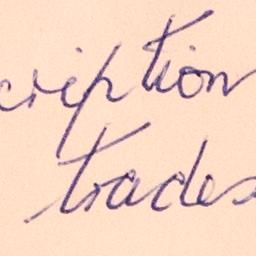 cription
trades